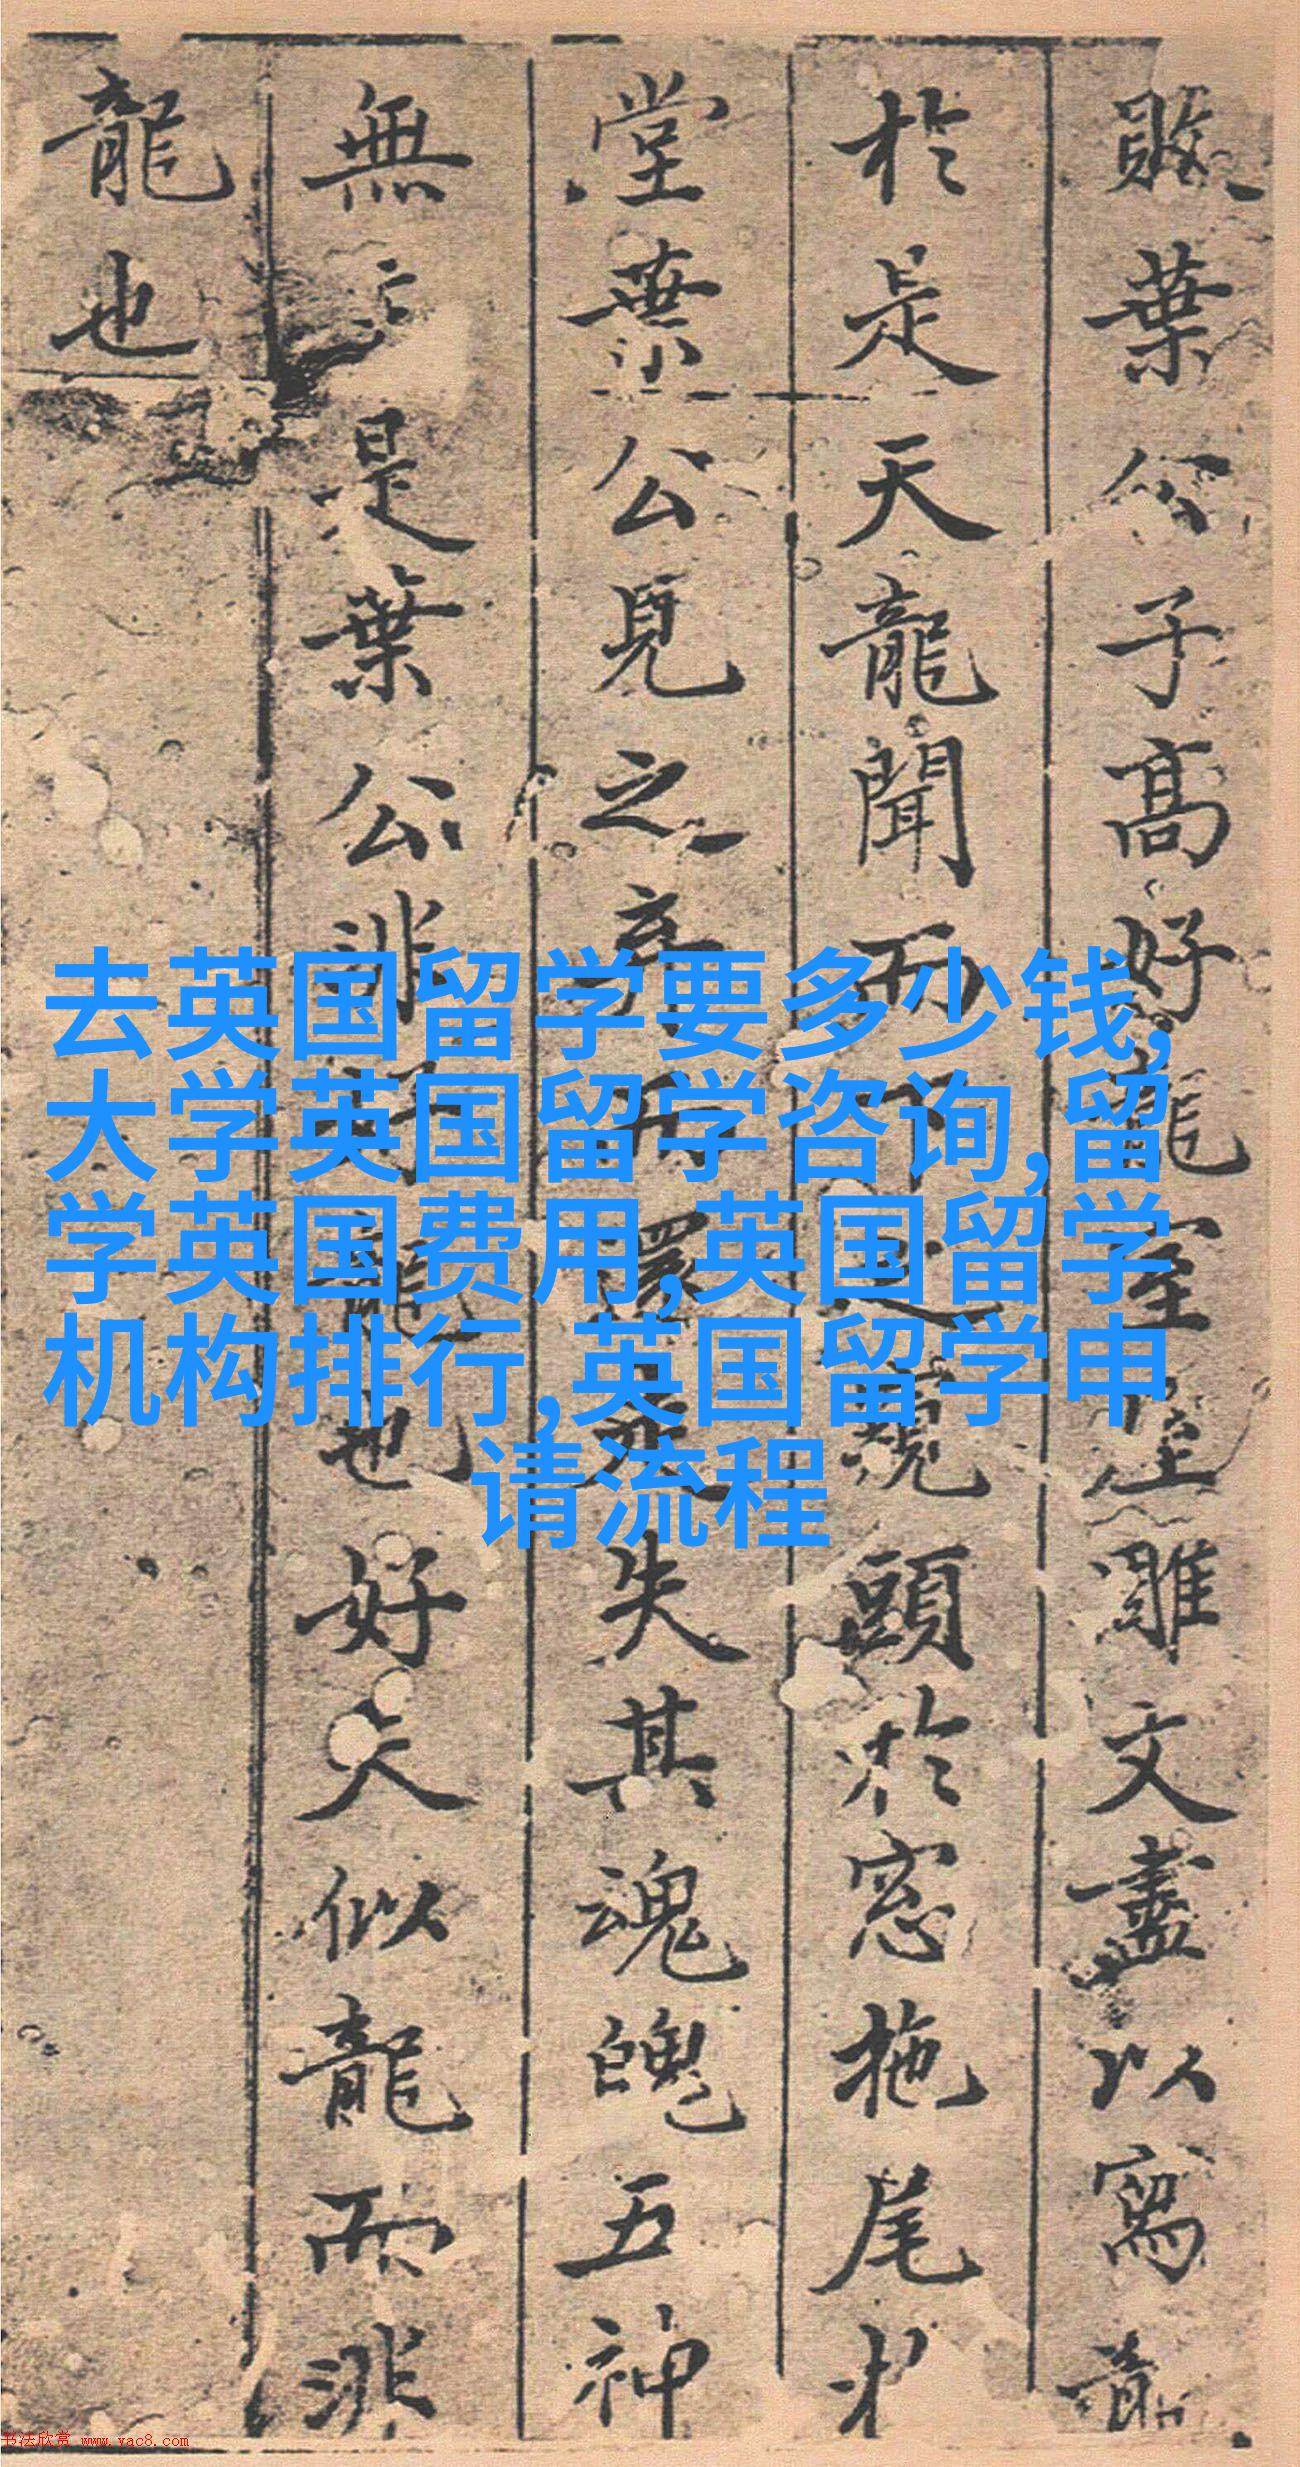 敗葉公子高好龍室屋雕文盡以寫龍
於是天龍聞而下之窺頭於窓拖尾
堂葉公見之弃而還走失其魂魄五神
無主是葉公非好龍也好夫似龍而非
龍也
去英国留学要多少钱,
大学英国留学咨询,留
学英国费用,英国留学
机构排行,英国留学申
请流程
书法欣赏 www.yac8.com